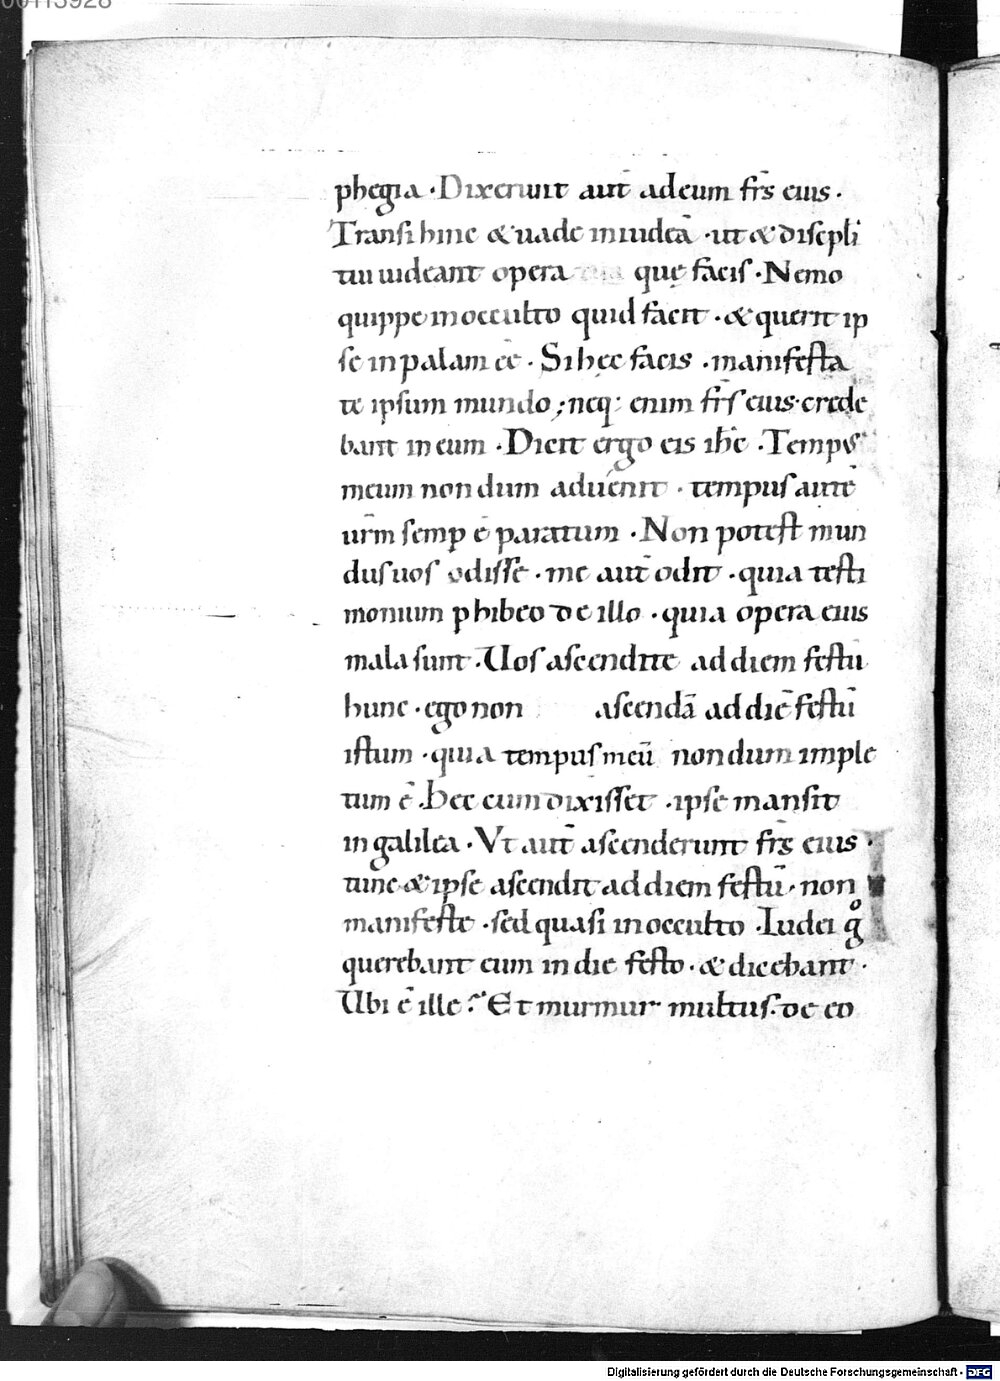 00113928
phegia · Dixerunt aut̄ adeum fr̄s eius ·
Transi hinc & uade iniudeā · ut & discipłi
tui uideant opera que facis · Nemo
quippe inocculto quid facit · & querit ip
se inpalam eē · Si hęc facis · manifesta
te ipsum mundo ; neq: enim fr̄s eius · crede
bant in eum · Dicit ergo eis ih̄c · Tempꝰ
meum non dum aduenit · tempus autē
ur̄m semp ē paratum · Non potest mun
dus uos odisse · me aut̄ odit · quia testi
monium phibeo de illo · quia opera eius
mala sunt · Uos ascendite ad diem festū
hunc · ego non ascendā ad diē festū
istum · quia tempus meū non dum imple
tum ē · Hec cum dixisset · ipse mansit
in galilea · Vt aut̄ ascenderunt fr̄s eius ·
tunc & ipse ascendit ad diem festū · non
manifeste · sed quasi in occulto · Iudei gͦ
querebant eum in die festo · & dicebant ·
Ubi ē ille ? Et murmur multus · de eo
Digitalisierung gefördert durch die Deutsche Forschungsgemeinschaft - DFG